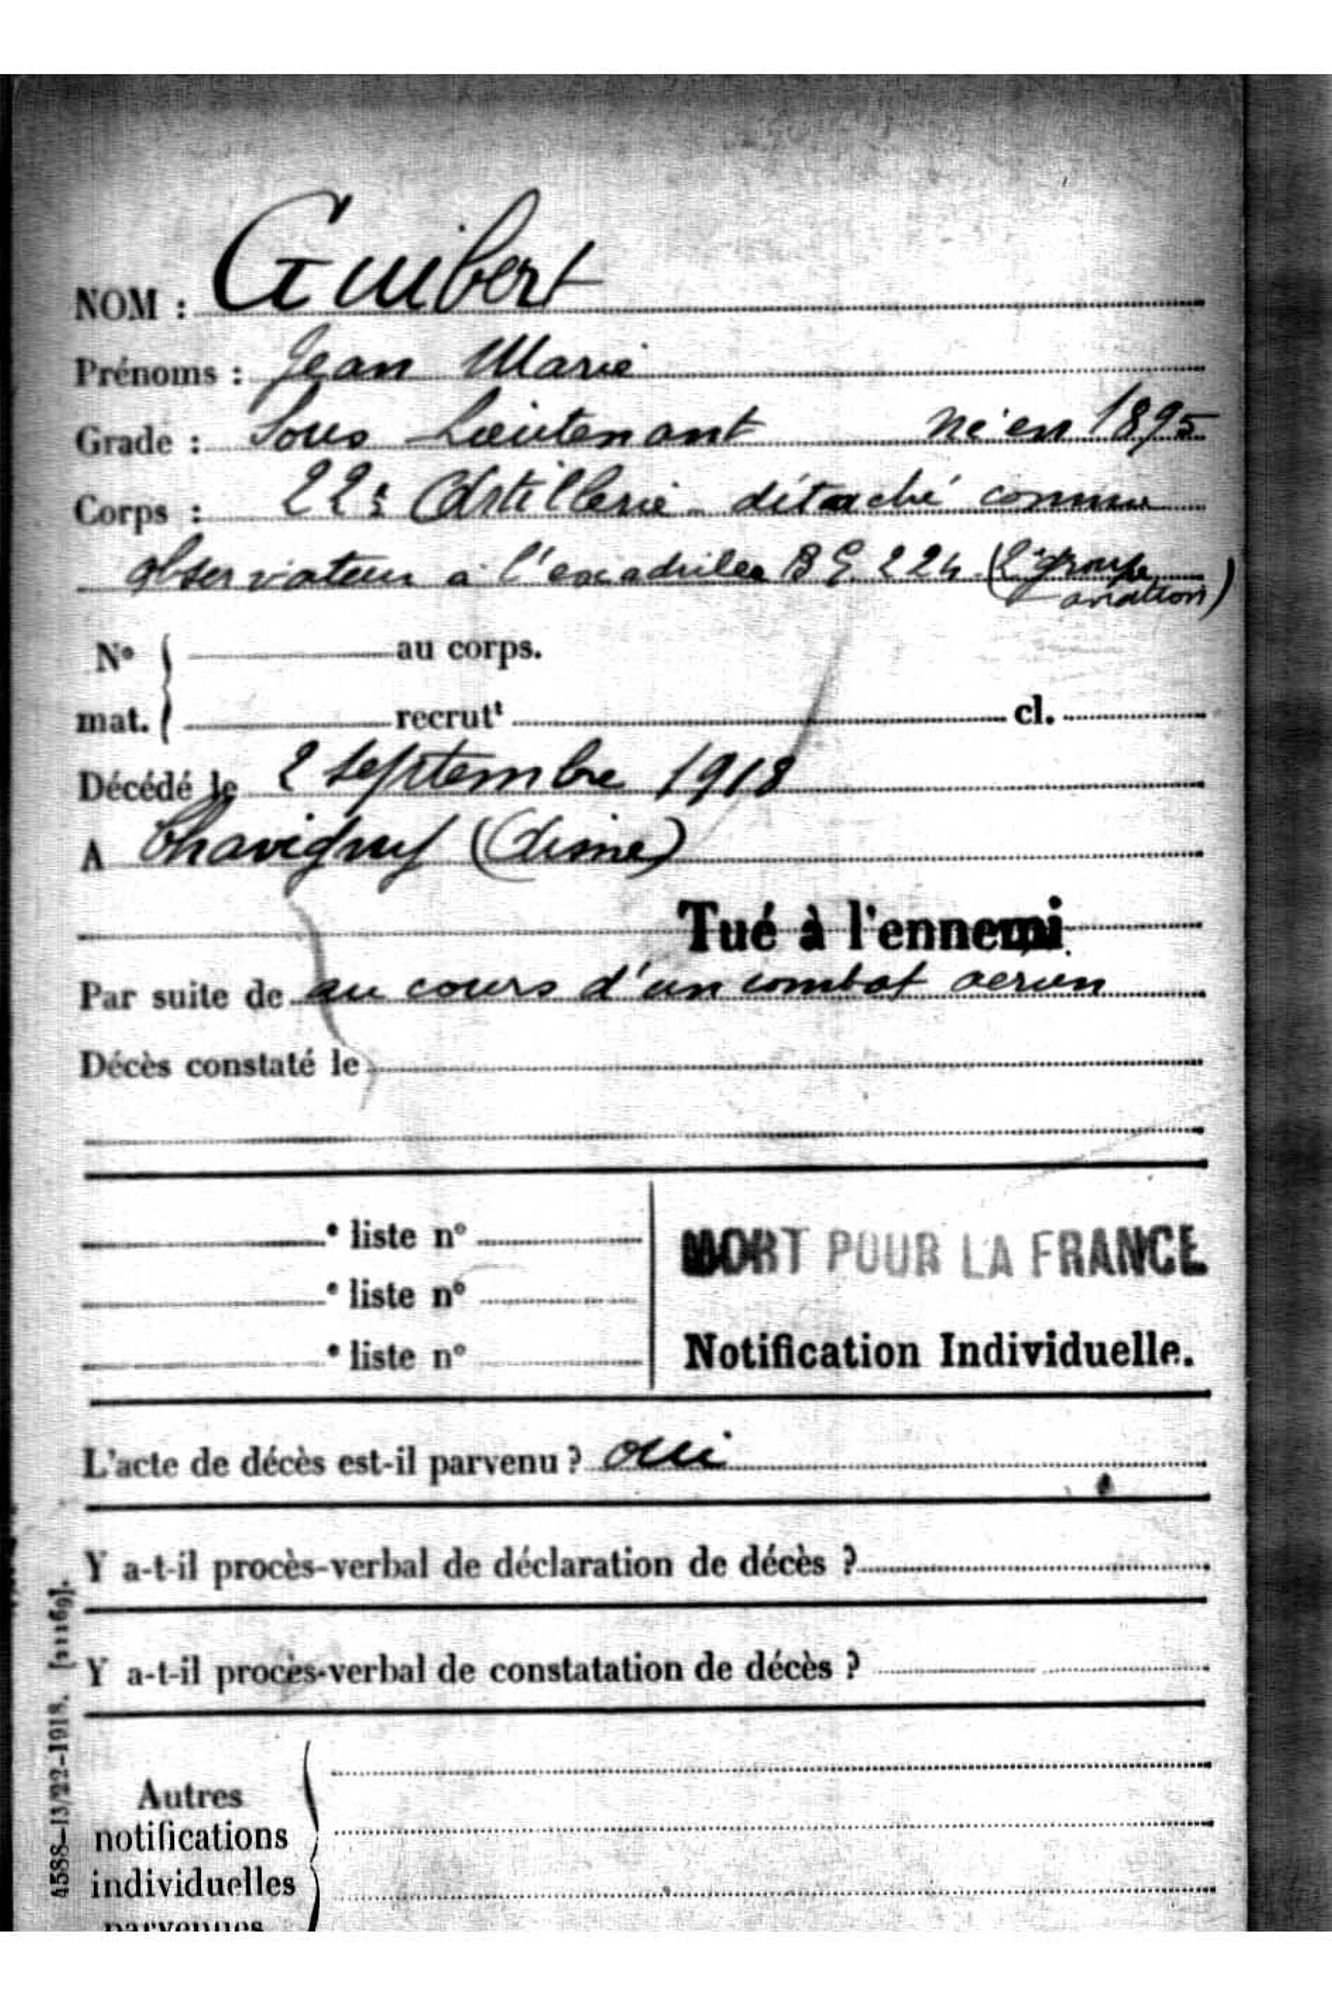 NOM : Guibert
Prénoms : Jean Marie
Grade : Sous Lieutenant né en 1895
Corps : 22e Artillerie détaché comme
observateur à l'escadrille BR 224 (2e groupe
aviation)
N° au corps.
mat. recrutt cl.
Décédé le 2 septembre 1918
A Chavigny (Aisne)
Tué à l'ennemi
Par suite de au cours d'un combat aérien
Décès constaté le
e liste n°
e liste n°
e liste n°
MORT POUR LA FRANCE
Notification Individuelle.
L'acte de décès est-il parvenu ? oui
Y a-t-il procès-verbal de déclaration de décès ?
Y a-t-il procès-verbal de constatation de décès ?
Autres
notifications
individuelles
parvenues
4588-13/22-1918.